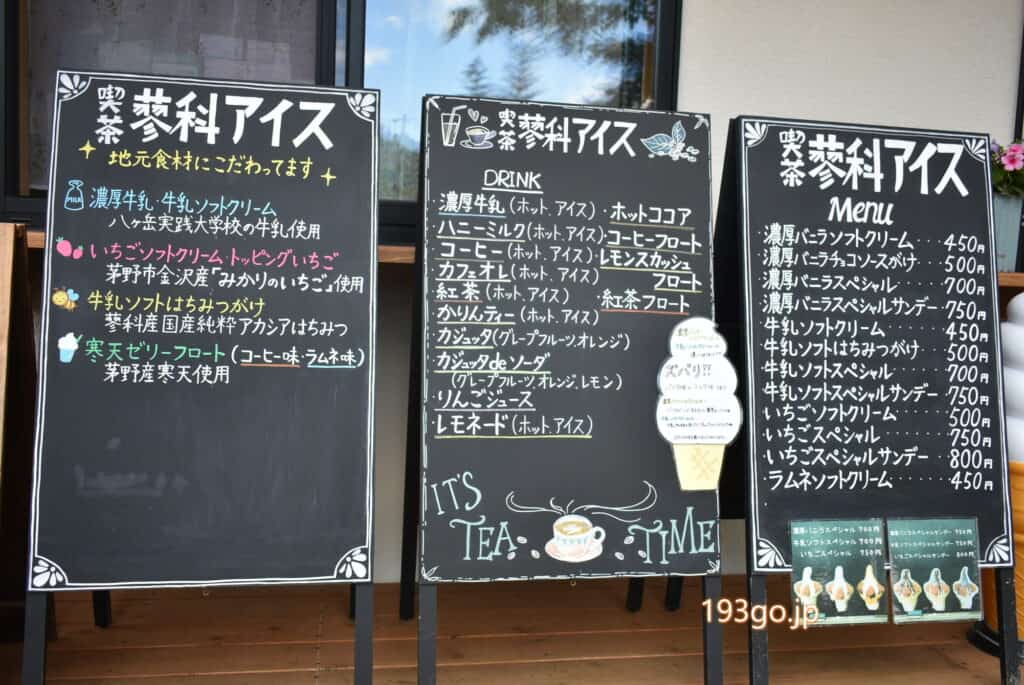 喫茶 蓼科アイス
地元食材にこだわってます
MILK
濃厚牛乳・牛乳ソフトクリーム
八ヶ岳実践大学校の牛乳使用
いちごソフトクリーム・トッピングいちご
茅野市金沢産「みかりのいちご」使用
牛乳ソフトはちみつがけ
蓼科産国産純粋アカシアはちみつ
寒天ゼリーフロート（コーヒー味・ラムネ味）
茅野産寒天使用
喫茶 蓼科アイス
DRINK
・濃厚牛乳（ホット、アイス）
・ハニーミルク（ホット、アイス）
・コーヒー（ホット、アイス）
・カフェオレ（ホット、アイス）
・紅茶（ホット、アイス）
・かりんティー（ホット、アイス）
・カジュッタ（グレープフルーツ、オレンジ）
・カジュッタdeソーダ
（グレープフルーツ、オレンジ、レモン）
・りんごジュース
・レモネード（ホット、アイス）
・ホットココア
・コーヒーフロート
・レモンスカッシュ
フロート
・紅茶フロート
ズバリ!!
IT'S
TEA TIME
喫茶 蓼科アイス
Menu
・濃厚バニラソフトクリーム・・・450円
・濃厚バニラチョコソースがけ・・・500円
・濃厚バニラスペシャル・・・・700円
・濃厚バニラスペシャルサンデー・・750円
・牛乳ソフトクリーム・・・・450円
・牛乳ソフトはちみつがけ・・・500円
・牛乳ソフトスペシャル・・・・700円
・牛乳ソフトスペシャルサンデー・・750円
・いちごソフトクリーム・・・・500円
・いちごスペシャル・・・・・750円
・いちごスペシャルサンデー・・・800円
・ラムネソフトクリーム・・・・450円
濃厚バニラスペシャル 700円
牛乳ソフトスペシャル 700円
いちごスペシャル 750円
193go.jp